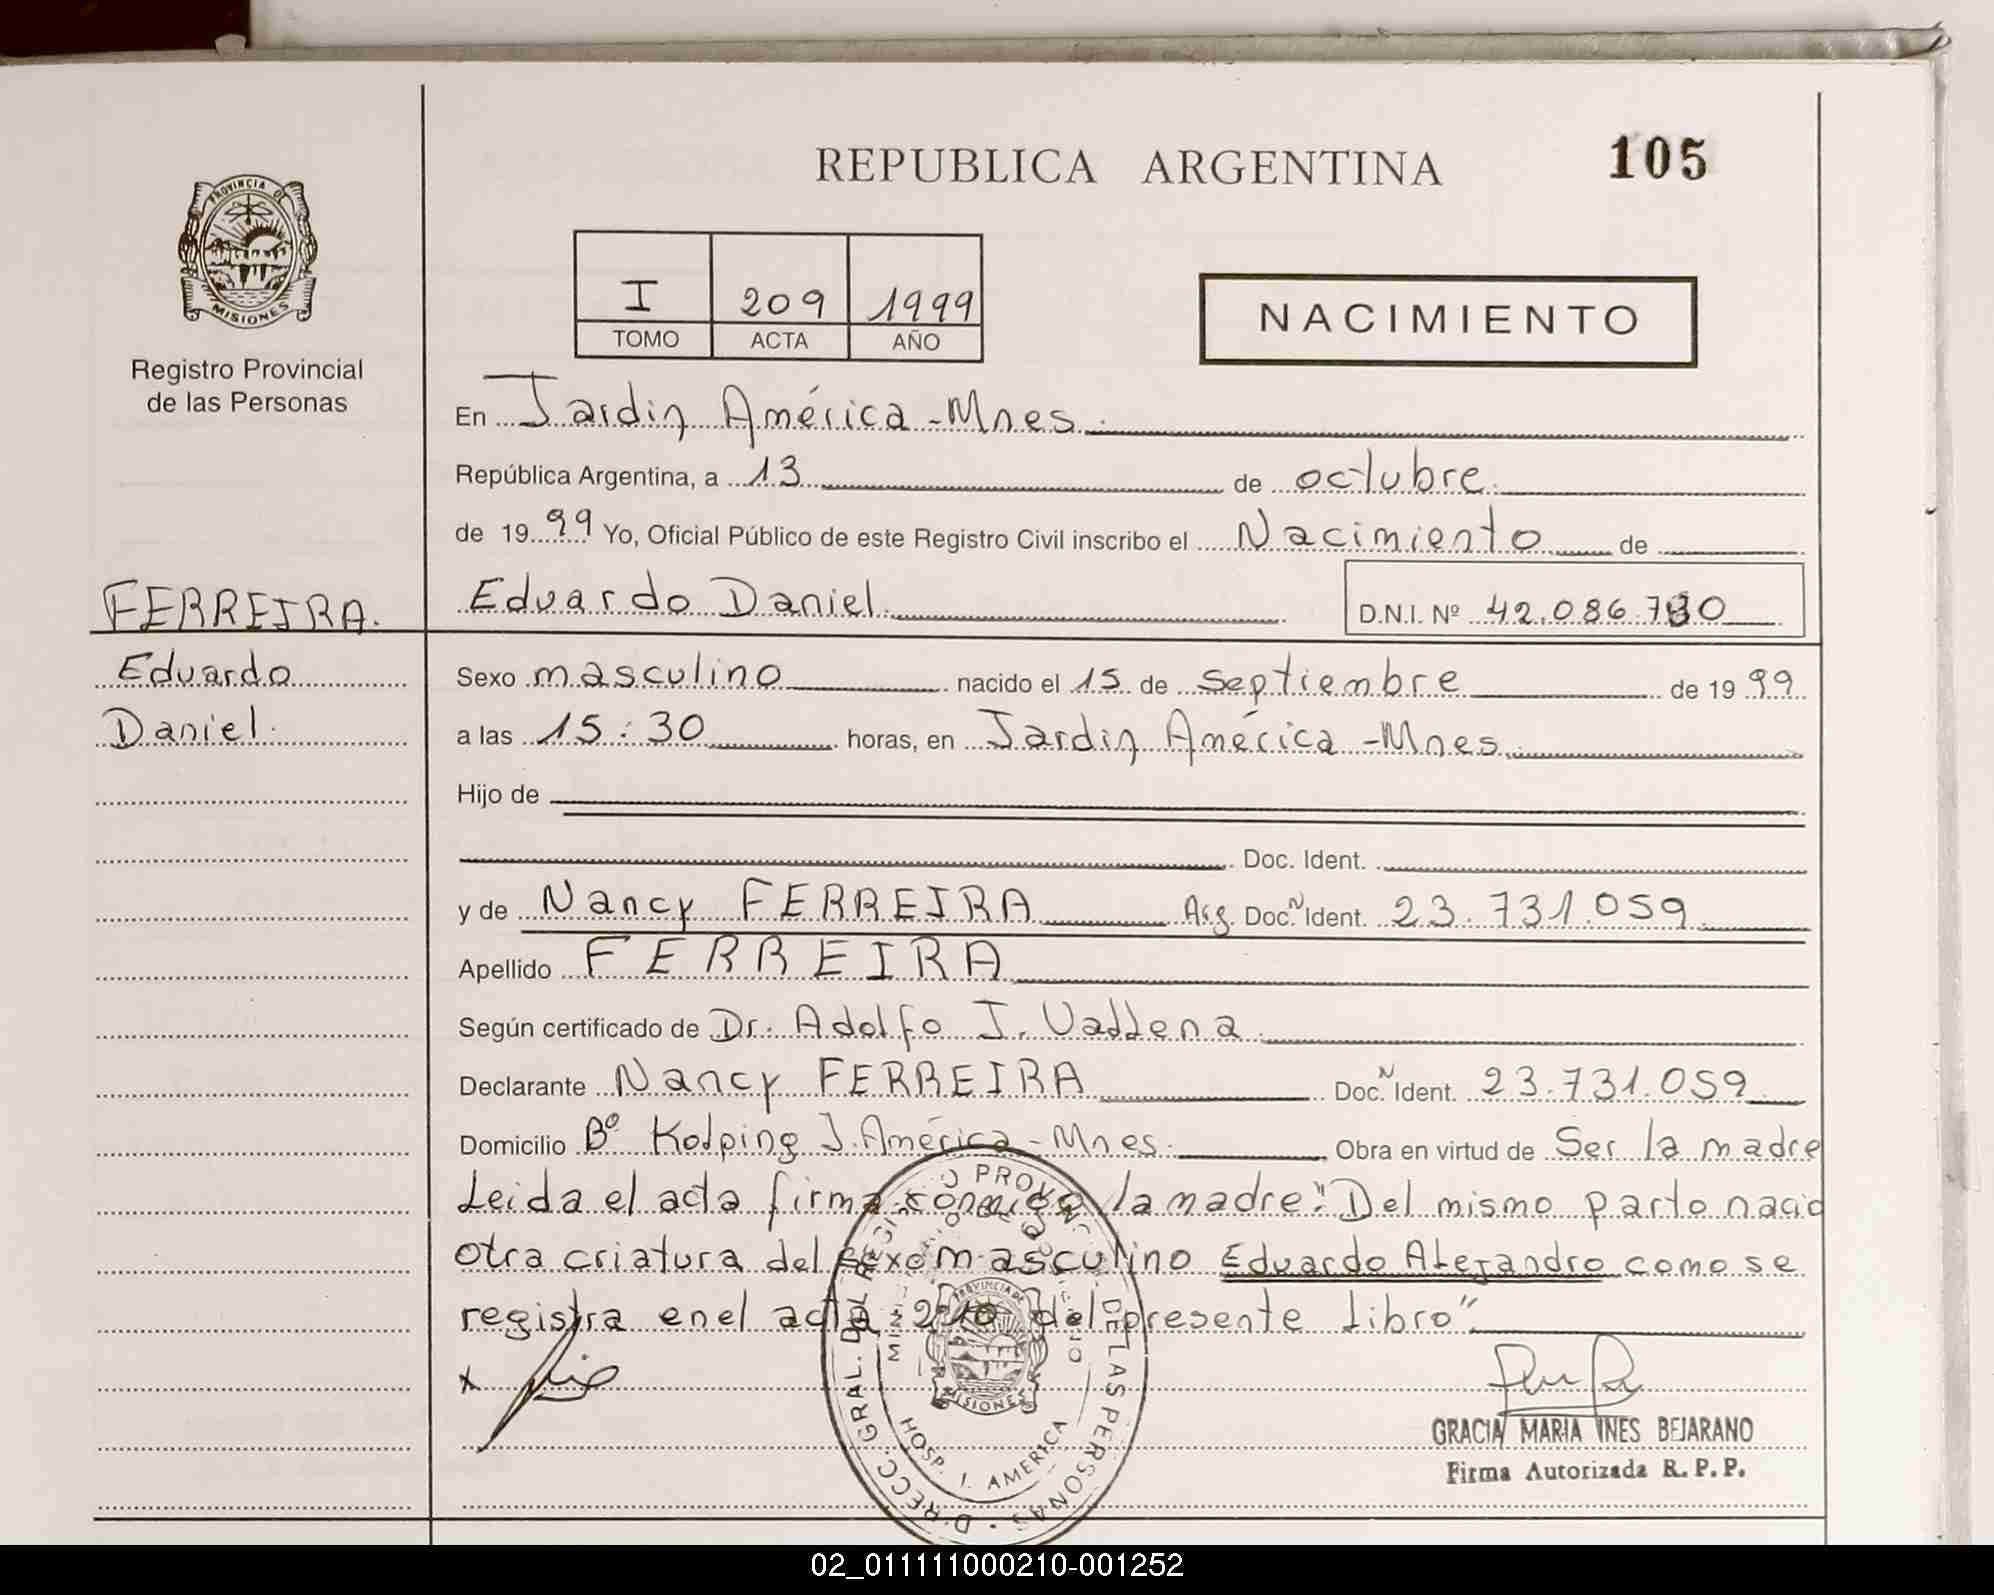 REPUBLICA ARGENTINA
105
PROVINCIA DE
MISIONES
Registro Provincial
de las Personas
I 209 1999
TOMO ACTA AÑO
NACIMIENTO
En Jardin América - Mnes.
República Argentina, a 13 de octubre
de 19 99 Yo, Oficial Público de este Registro Civil inscribo el Nacimiento de
FERREIRA.
Eduardo
Daniel.
Eduardo Daniel
D.N.I. Nº 42.086.780
Sexo masculino nacido el 15 de septiembre de 19 99
a las 15:30 horas, en Jardin América - Mnes.
Hijo de
Doc. Ident.
y de Nancy FERREIRA Arg. Doc. N Ident. 23.731.059
Apellido FERREIRA
Según certificado de Dr. Adolfo J.
Declarante Nancy FERREIRA Doc. N Ident. 23.731.059
Domicilio Bº Kolping J. América - Mnes. Obra en virtud de Ser la madre
Leida el acta firma conmigo la madre: "Del mismo parto nacio
otra criatura del sexo masculino Eduardo Alejandro como se
registra en el acta 210 del presente libro"
x
DIRECC. GRAL. DEL REGISTRO PROVINC. DE LAS PERSONAS
PROVINCIA DE
MISIONES
HOSP. J. AMERICA
GRACIA MARIA INES BEJARANO
Firma Autorizada R.P.P.
02_011111000210-001252